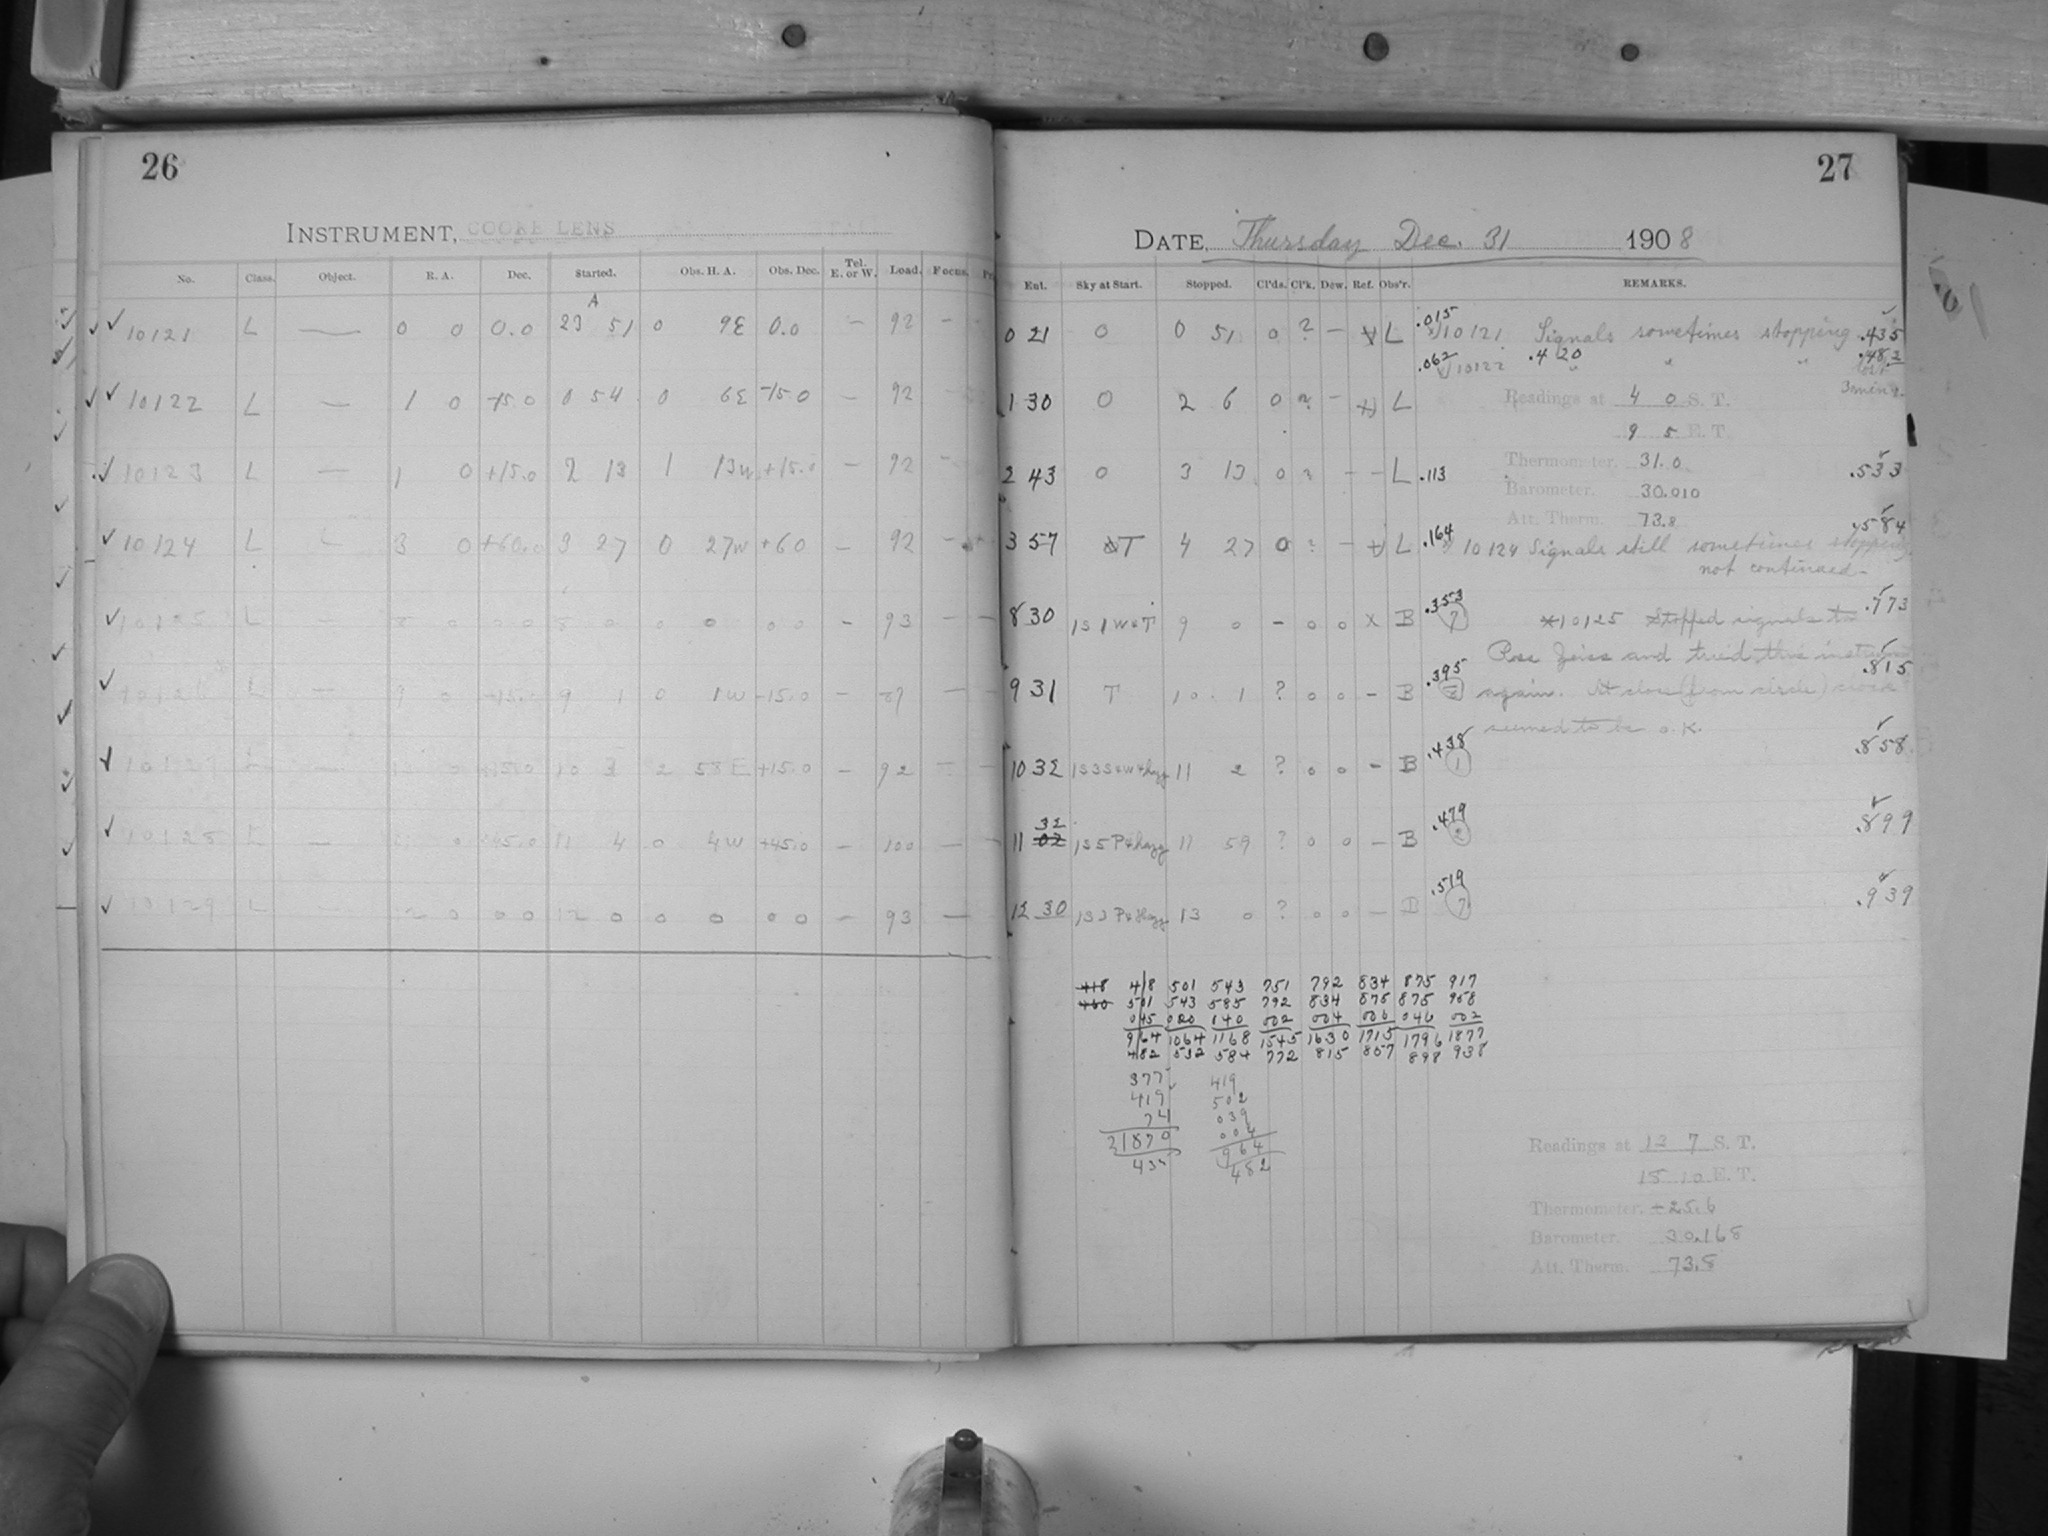 26
INSTRUMENT, COOKE LENS
No. Class. Object. R. A. Dec. Started. Obs. H. A. Obs. Dec. Tel. E. or W. Load. Focus.
A
10121 L — 0 0 0.0 23 51 0 9E 0.0 — 92 -
10122 L — 1 0 -15.0 0 54 0 6E -15.0 — 92 -
10123 L — 1 0 +15.0 2 13 1 13w +15.0 — 92 -
10124 L 3 0 +60.0 3 27 0 27w +60 — 92 -
10125 L 8 0 0 0 8 0 0 0 0 0 - 93 —
10126 L — 9 0 -15.0 9 1 0 1w -15.0 - 89 —
0 +15.0 10 3 2 58E +15.0 - 92 —
10128 L — 0 +45.0 11 4 0 4w +45.0 - 100 —
10129 L 12 0 0 0 12 0 0 0 0 0 — 93 —
27
DATE, Thursday Dec. 31 1908
Ent. Sky at Start. Stopped. Cl'ds. Cl'k. Dew. Ref. Obs'r. REMARKS.
0 21 0 0 51 0 ? — L .015 10121 Signals sometimes stopping .435
.062 10122 .420 " " " .482
1 30 0 2 6 0 ? - L Readings at 4 0 S. T. 3 min
9 5 E. T.
2 43 0 3 13 0 ? - - L .113 Thermometer. 31.0 .533
Barometer. 30.010
Att. Therm. 73.8
3 57 T 4 27 0 ? - L .164 10124 Signals still sometimes stopping .584
not continued -
8 30 1S1W&T 9 0 - 0 0 x B .353 7 *10125 Stopped signals to .773
Ross Zeiss and tried this instrum
9 31 T 10 1 ? 0 0 - B .395 again. At close (from circle) clock .815
seemed to be o.K.
10 32 1S3S&W&hazy 11 2 ? 0 0 - B .438 1 .858
11 32 02 1S5P&hazy 11 59 ? 0 0 - B .479 .899
12 30 1S3P&hazy 13 0 ? 0 0 — .519 7 .939
418 418 501 543 751 792 834 875 917
460 501 543 585 792 834 875 875 958
045 020 040 002 004 006 046 002
964 1064 1168 1545 1630 1715 1796 1877
482 532 584 772 815 857 898 938
377 419
419 502
74 039
2/870 004
435 964
482
Readings at 13 7 S. T.
18 10 E. T.
Thermometer. +25.6
Barometer. 30.168
Att. Therm. 73.8